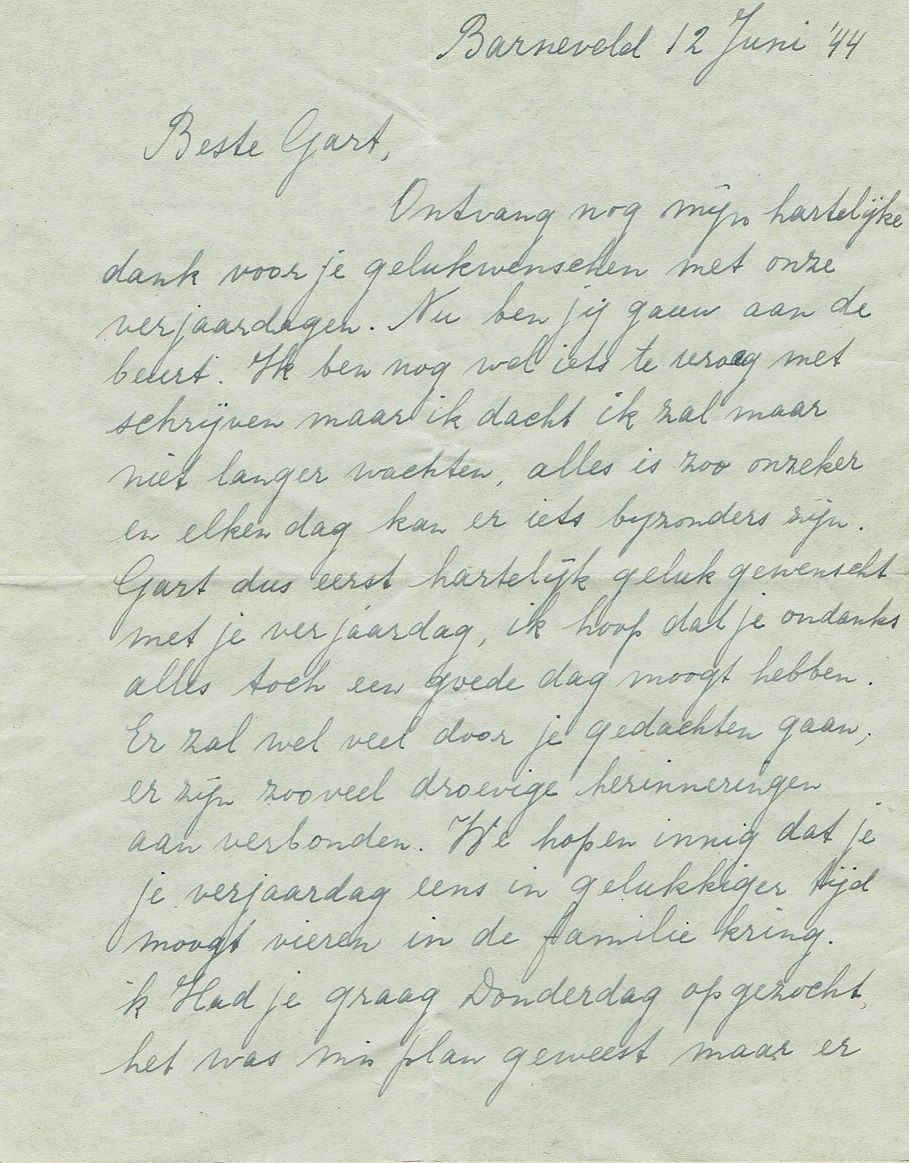 Barneveld 12 Juni '44
Beste Gart,
Ontvang nog mijn hartelijke
dank voor je gelukwenschen met onze
verjaardagen. Nu ben jij gauw aan de
beurt. Ik ben nog wel iets te vroeg met
schrijven maar ik dacht ik zal maar
niet langer wachten, alles is zoo onzeker
en elken dag kan er iets bijzonders zijn.
Gart dus eerst hartelijk geluk gewenscht
met je verjaardag, ik hoop dat je ondanks
alles toch een goede dag moogt hebben.
Er zal wel veel door je gedachten gaan,
er zijn zooveel droevige herinneringen
aan verbonden. We hopen innig dat je
je verjaardag eens in gelukkiger tijd
moogt vieren in de familie kring.
ik Had je graag Donderdag opgezocht,
het was mn plan geweest maar er